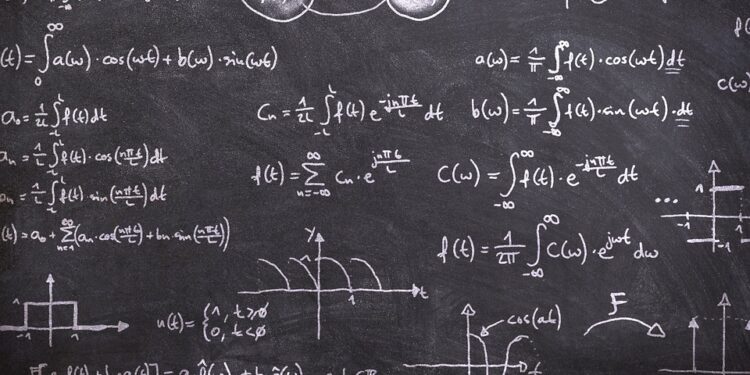 (t) = ∫₀^∞ a(ω)·cos(ωt) + b(ω)·sin(ωt)
a(ω) = 1/π ∫_{-∞}^{∞} f(t)·cos(ωt) dt
a₀ = 1/2L ∫_{-L}^{L} f(t) dt
Cn = 1/2L ∫_{-L}^{L} f(t) e^{-jnπt/L} dt
b(ω) = 1/π ∫_{-∞}^{∞} f(t)·sin(ωt)·dt
C(ω)
an = 1/L ∫_{-L}^{L} f(t)·cos(nπt/L) dt
f(t) = ∑_{n=-∞}^{∞} Cn·e^{jnπt/L}
C(ω) = ∫_{-∞}^{∞} f(t)·e^{-jnπt/L} dt
an = 1/L ∫_{-L}^{L} f(t)·sin(nπt/L) dt
(t) = a₀ + ∑_{n=1}^{∞} (an·cos(nπt/L) + bn·sin(nπt/L))
f(t) = 1/2π ∫_{-∞}^{∞} C(ω)·e^{jωt} dω
...
1
-1
1
-1
y
1
t
1
-1
1
u(t) = {1, t≥0
{0, t<0
cos(at)
F